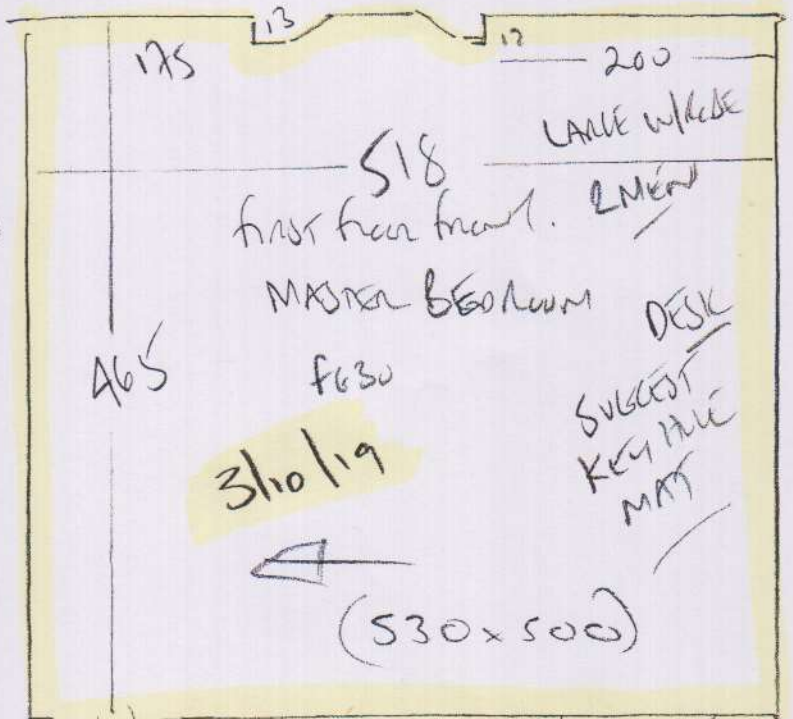 13
175
12
200
LARGE W/ROBE
518
2 MEN
first floor front.
MASTER BEDROOM
DESK
465
F630
SUGGEST
KEYHOLE
MAT
3/10/19
(530 x 500)